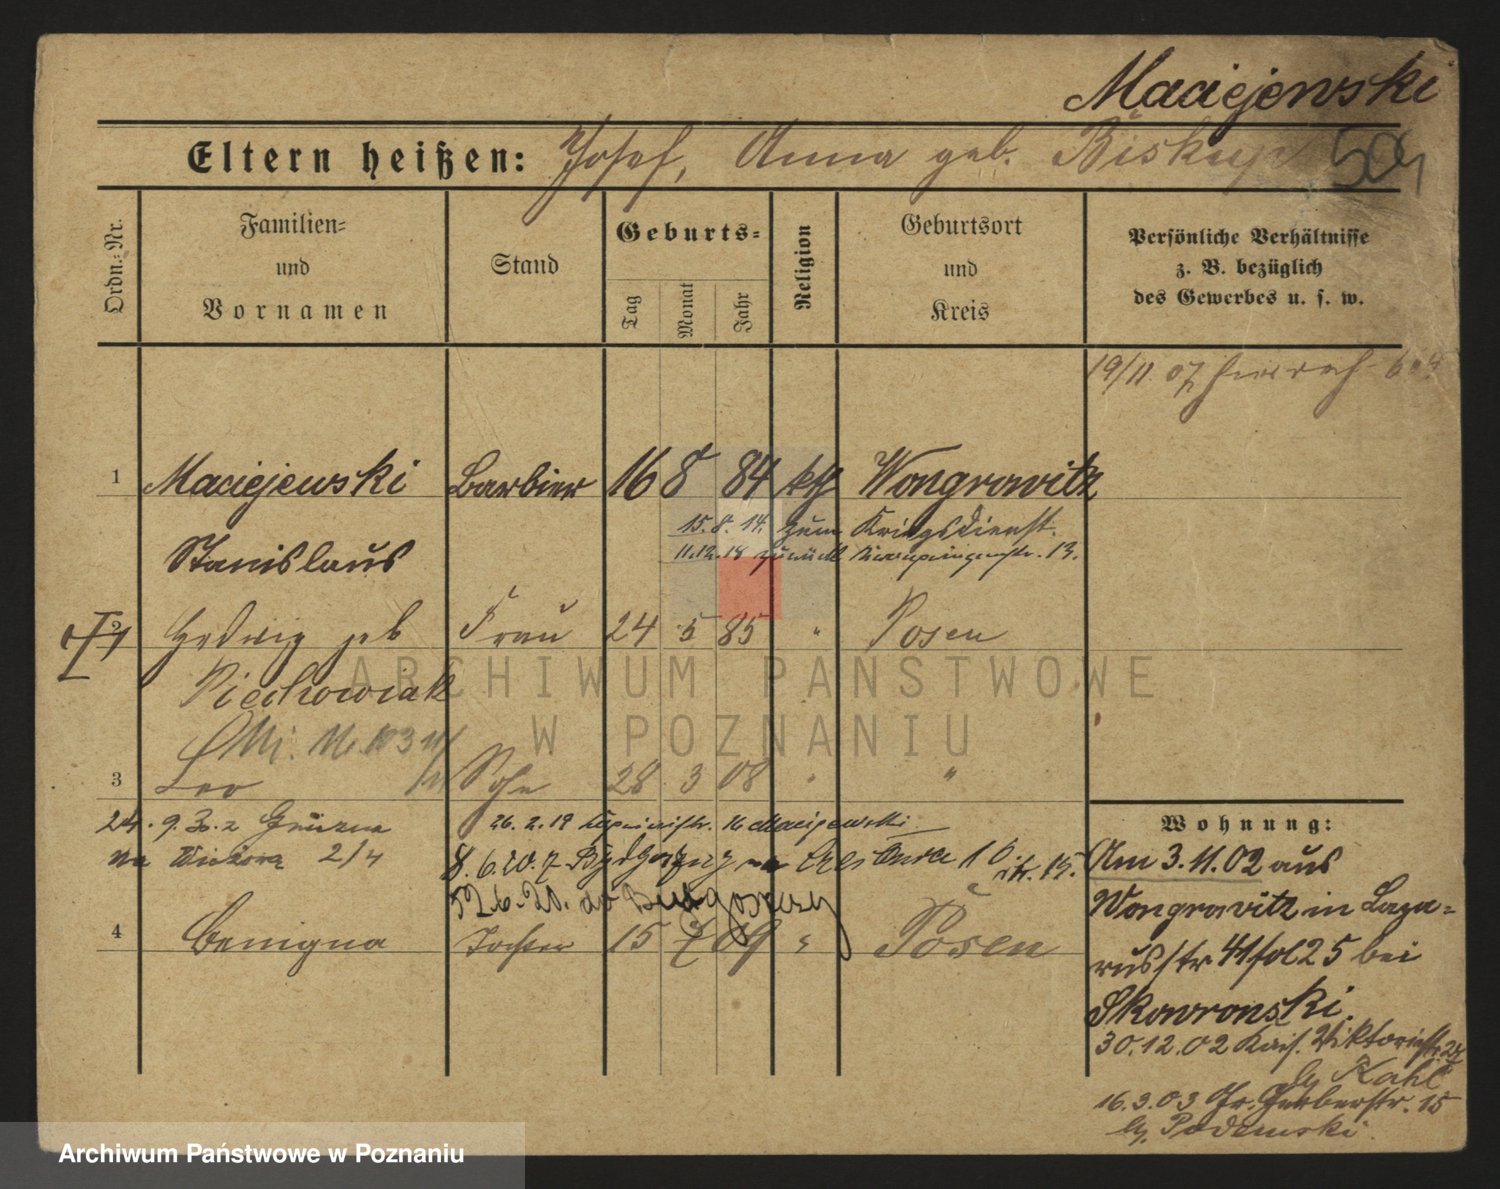 Maciejewski
Eltern heißen: Josef, Anna geb. Biskup 504
Ordn.=Nr.
Familien=
und
Vornamen
Stand
Geburts=
Tag
Monat
Jahr
Religion
Geburtsort
und
Kreis
Persönliche Verhältnisse
z. B. bezüglich
des Gewerbes u. s. w.
19/11 07
1 Maciejewski Barbier 16 8 84 kth Wongrowitz
15.8.14. zum Kriegsdienst.
Stanislaus
11.12.18 zurück 13.
2 Hedwig geb Frau 24 5 85 " Posen
Piechowiak
ARCHIWUM PAŃSTWOWE
W POZNANIU
3 Leo Sohn 28 3 08 " "
24. 9. 30. z
na 2/4
26.2.19 16 Maciejewski
8.6.20. z Bydgoszczy 16 15.
12.6.20. do Bydgoszczy
4 Benigna Tochter 15 2 09 " Posen
Wohnung:
Am 3.11.02 aus
Wongrowitz in Laza=
russtr 41 fol 25 bei
Skowronski.
30.12.02 Kais. Viktoriastr. 24
b/ Kahl
16.3.03 Gr. Gerberstr. 15
b/ Podemski
Archiwum Państwowe w Poznaniu